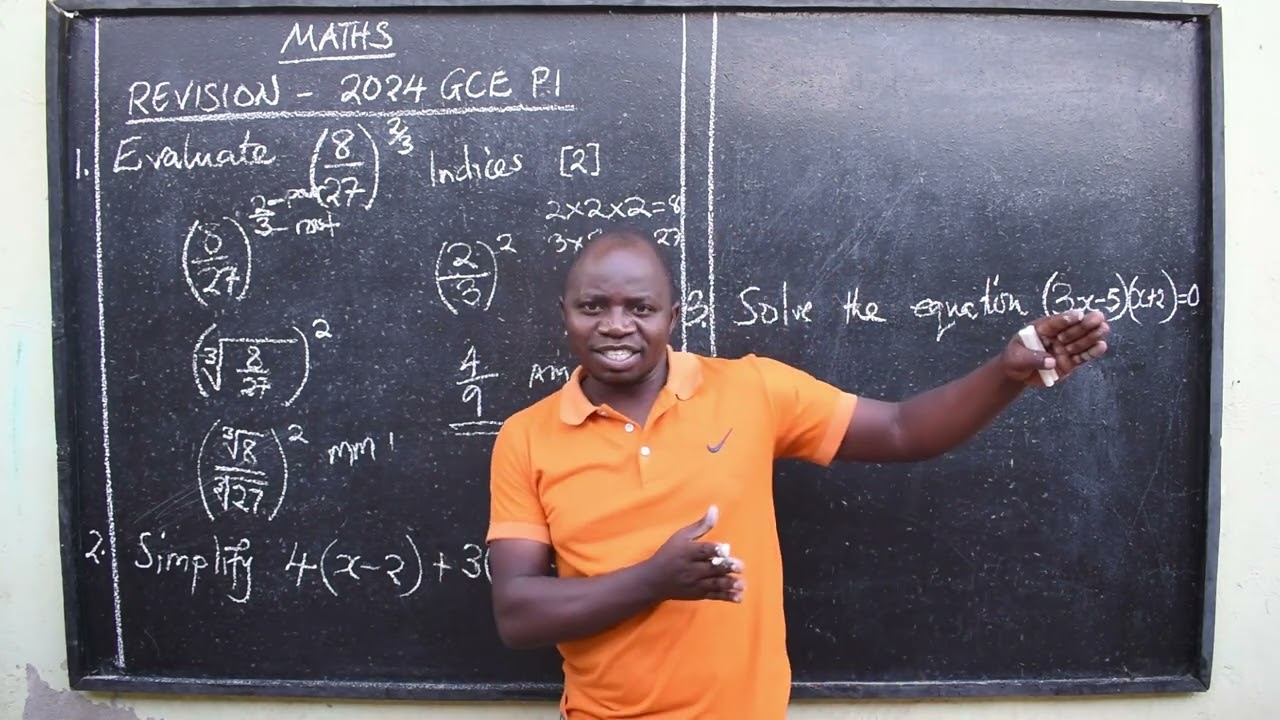 MATHS
REVISION - 2024 GCE P.1
1. Evaluate (8/27)^2/3 Indices [2]
(8/27)^2/3 - root
2×2×2=8
27
(2/3)^2
(∛(8/27))^2
4/9
(∛8/∛27)^2 mm1
2. Simplify 4(x-2)+3(
3. Solve the equation (3x-5)(x+2)=0